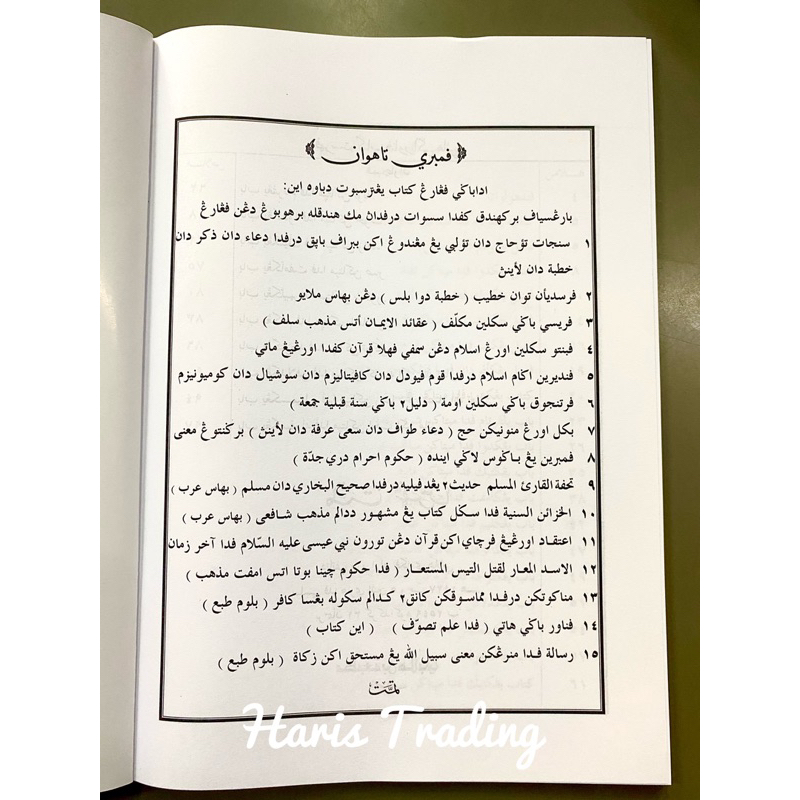 ﴿ فمبري تاهوان ﴾
اداباکي ڤڠارڠ کتاب يڠترسبوت دباوه اين:
بارڠسياڤ برکهندق کڤدا سسوات درڤدان مک هندقله برهوبوڠ دڠن ڤڠارڠ
١ سنجات تؤحاج دان تؤلبي يڠ مڠندوڠ اکن ببراڤ بابق درڤدا دعاء دان ذکر دان
خطبة دان لأينڽ
٢ ڤرسديأن توان خطيب ( خطبة دوا بلس ) دڠن بهاس ملايو
٣ ڤريسي باکي سکلين مکلّف ( عقائد الايمان أتس مذهب سلف )
٤ ڤبنتو سکلين اورڠ اسلام دڠن سمڤي ڤهلا قرآن کڤدا اورڠيڠ ماتي
٥ ڤنديرين اݢام اسلام درڤدا قوم ڤيودل دان کاڤيتاليزم دان سوشيال دان کوميونيزم
٦ ڤرتنجوق باکي سکلين اومة ( دليل٢ باکي سنة قبلية جمعة )
٧ بکل اورڠ منونيکن حج ( دعاء طواف دان سعى عرفة دان لأينڽ ) برݢنتوڠ معنى
٨ ڤمبرين يڠ باݢوس لاݢي اينده ( حکوم احرام دري جدّة )
٩ تحفة القارئ المسلم حديث٢ يڠدڤيليه درڤدا صحيح البخاري دان مسلم ( بهاس عرب )
١٠ الخزائن السنية ڤدا سکل کتاب يڠ مشهور ددالم مذهب شافعى ( بهاس عرب )
١١ اعتقاد اورڠيڠ ڤرچاي اکن قرآن دڠن تورون نبي عيسى عليه السّلام ڤدا آخر زمان
١٢ الاسد المعار لقتل التيس المستعار ( ڤدا حکوم چينا بوتا اتس امڤت مذهب )
١٣ مناکوتکن درڤدا مماسوقکن کانق٢ کدالم سکوله بڠسا کافر ( بلوم طبع )
١٤ ڤناور باکي هاتي ( ڤدا علم تصوّف ) ( اين کتاب )
١٥ رسالة ڤدا منرڠکن معنى سبيل الله يڠ مستحق اکن زکاة ( بلوم طبع )
تمّت
Haris Trading